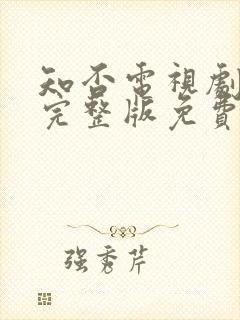 知否電視劇
完整版免費
强秀芹